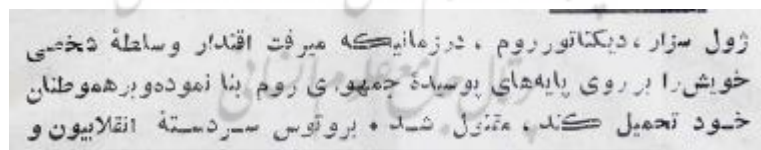 ژول سزار، دیکتاتور روم، در زمانیکه میرفت اقتدار و سلطهٔ شخصی
خویش را بر روی پایه‌های پوسیدهٔ جمهوری روم بنا نموده و بر هموطنان
خود تحمیل کند، مقتول شد. بروتوس سردستهٔ انقلابیون و